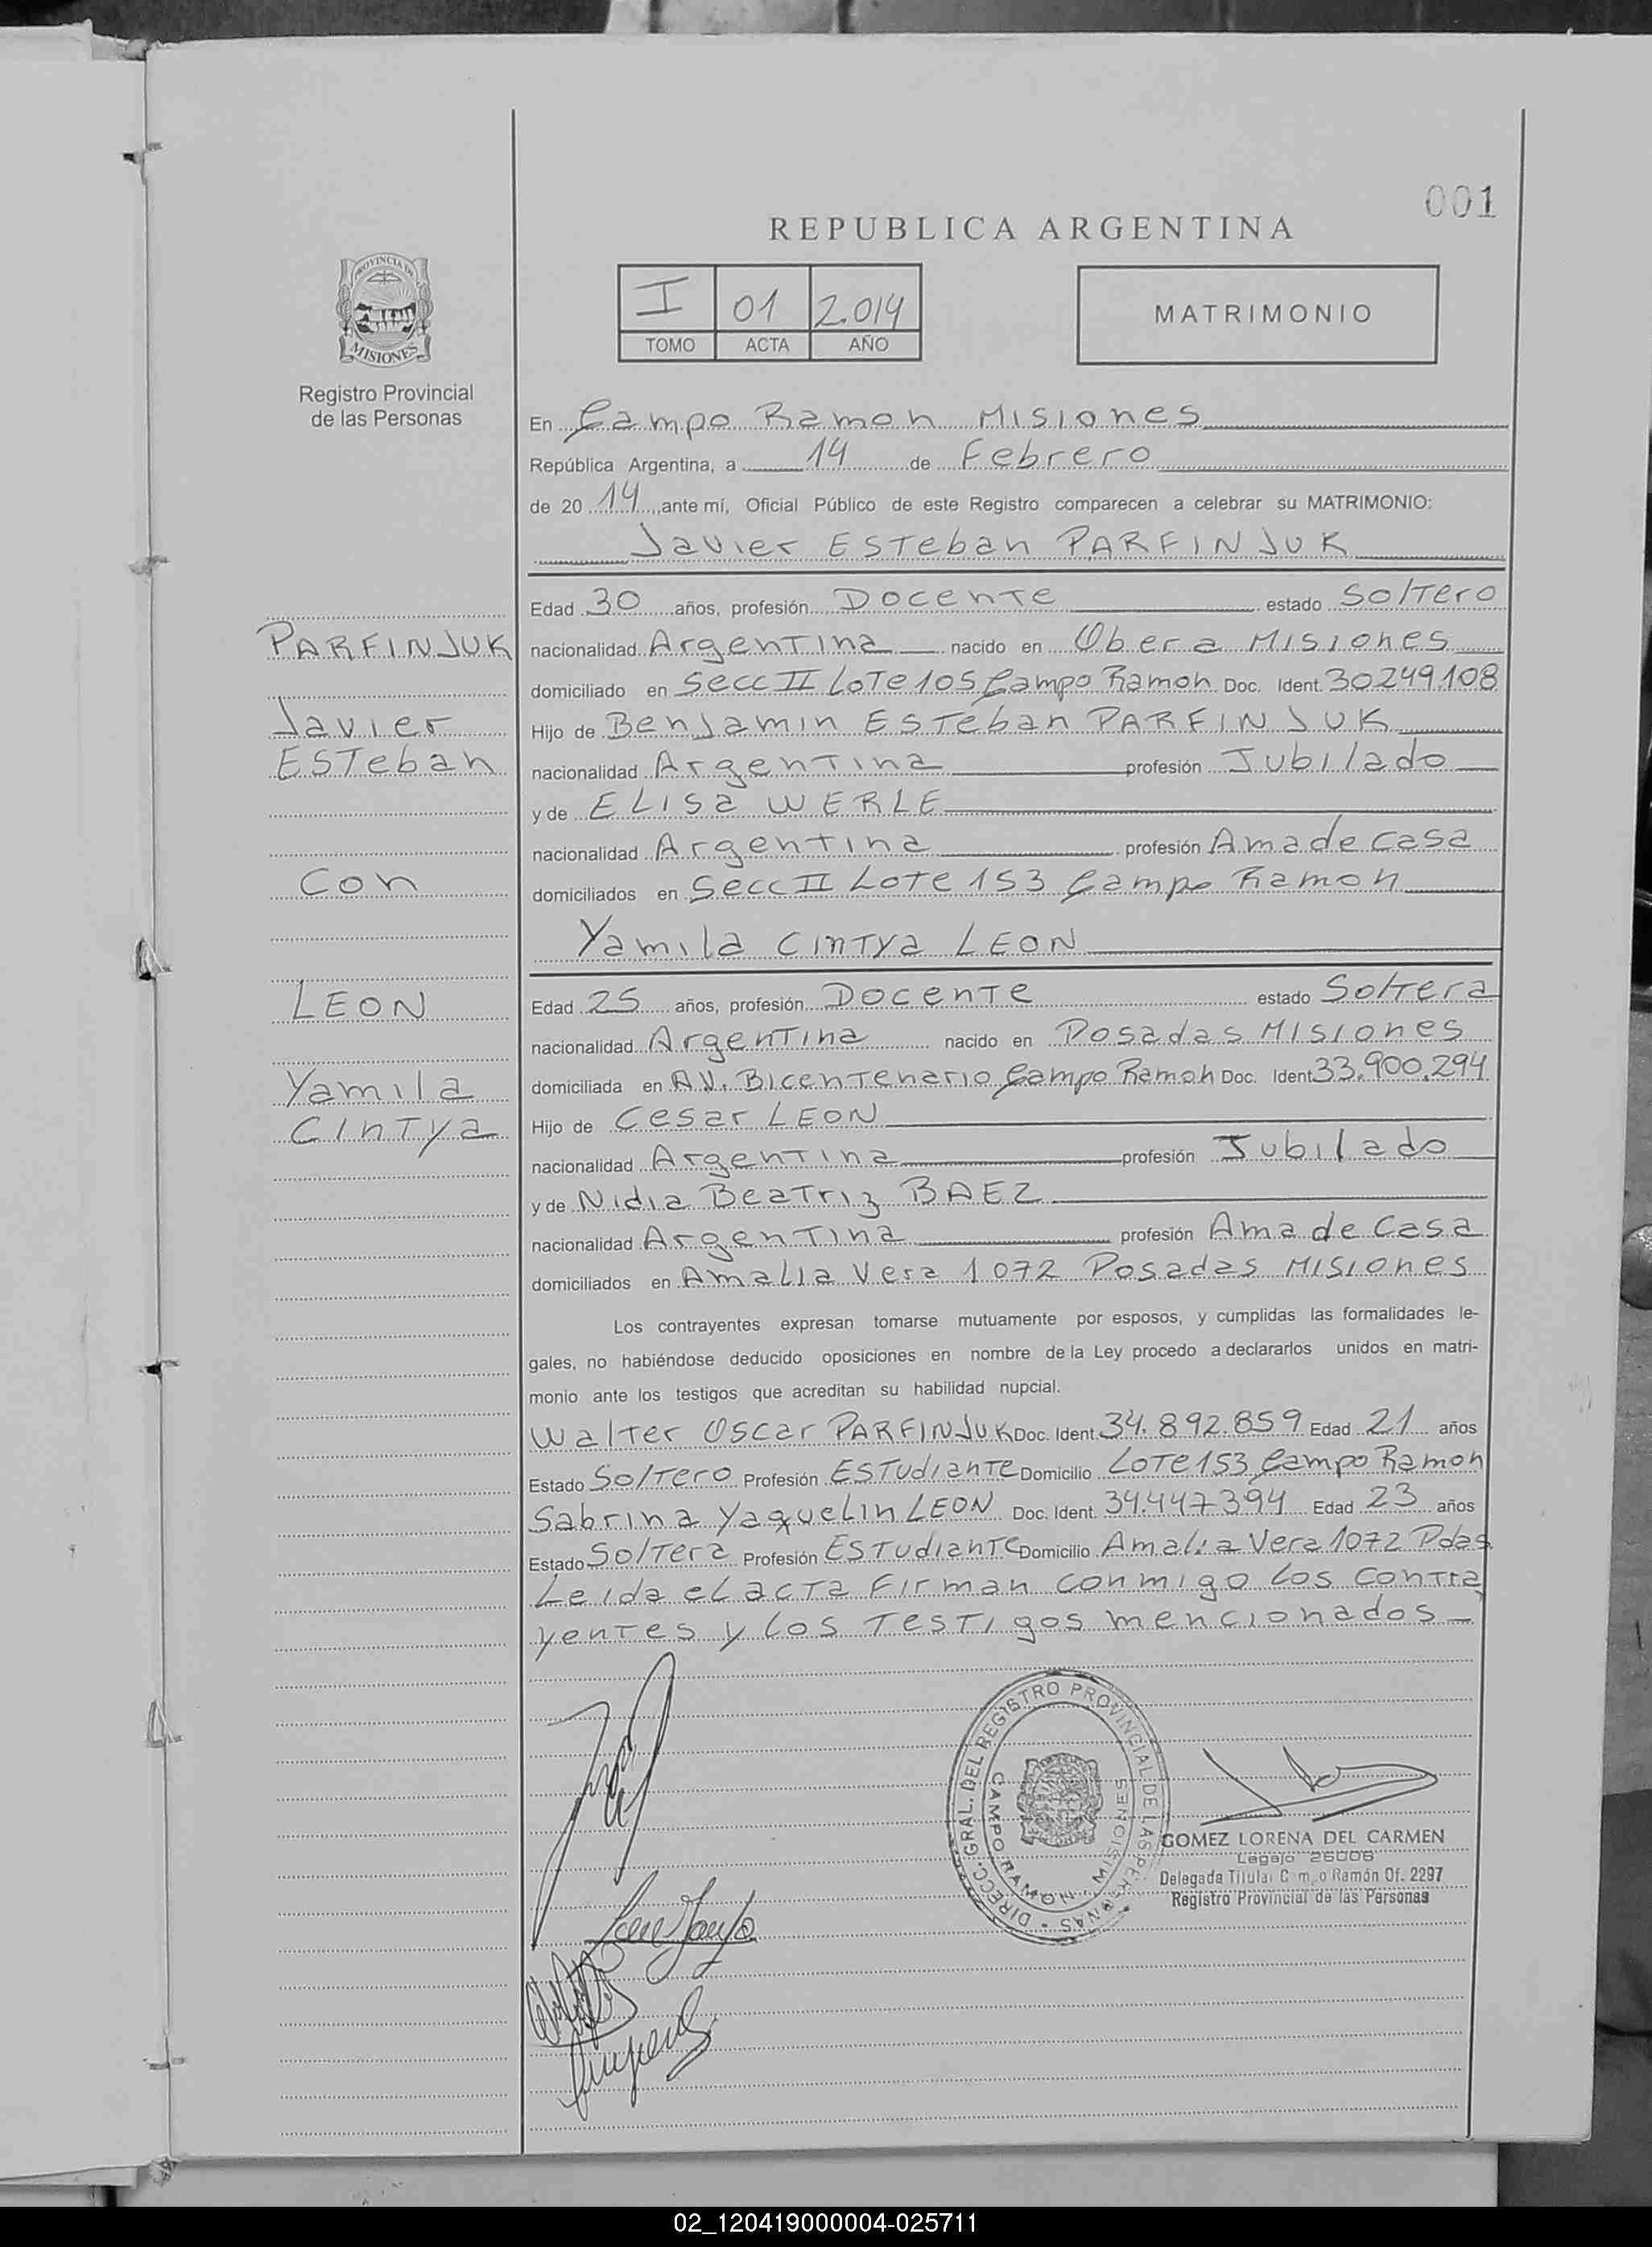 001
REPUBLICA ARGENTINA
PROVINCIA DE
MISIONES
Registro Provincial
de las Personas
I 01 2.014
TOMO ACTA AÑO
MATRIMONIO
En Campo Ramon Misiones
República Argentina, a 14 de Febrero
de 20 14, ante mí, Oficial Público de este Registro comparecen a celebrar su MATRIMONIO:
Javier ESTeban PARFINJUK
PARFINJUK
Javier
ESTeban
con
LEON
Yamila
CINTya
Edad 30 años, profesión Docente estado Soltero
nacionalidad Argentina nacido en Obera Misiones
domiciliado en Secc II Lote 105 Campo Ramon Doc. Ident. 30249.108
Hijo de Benjamin Esteban PARFINJUK
nacionalidad Argentina profesión Jubilado
y de ELISa WERLE
nacionalidad Argentina profesión Ama de casa
domiciliados en Secc II Lote 153 Campo Ramon
Yamila Cintya LEON
Edad 25 años, profesión Docente estado Soltera
nacionalidad Argentina nacido en Posadas Misiones
domiciliada en AV. Bicentenario Campo Ramon Doc. Ident. 33.900.294
Hijo de Cesar LEON
nacionalidad Argentina profesión Jubilado
y de Nidia Beatriz BAEZ
nacionalidad Argentina profesión Ama de Casa
domiciliados en Amalia Vera 1072 Posadas Misiones
Los contrayentes expresan tomarse mutuamente por esposos, y cumplidas las formalidades le-
gales, no habiéndose deducido oposiciones en nombre de la Ley procedo a declararlos unidos en matri-
monio ante los testigos que acreditan su habilidad nupcial.
Walter Oscar PARFINJUK Doc. Ident. 34.892.859 Edad 21 años
Estado Soltero Profesión Estudiante Domicilio Lote 153 Campo Ramon
Sabrina Yaquelin LEON Doc. Ident. 34.447394 Edad 23 años
Estado Soltera Profesión Estudiante Domicilio Amalia Vera 1072 Pdas
Leida el acta Firman conmigo los contra
yentes y los testigos mencionados
DIRECC. GRAL. DEL REGISTRO PROVINCIAL DE LAS PERSONAS
CAMPO RAMON - MISIONES
GOMEZ LORENA DEL CARMEN
Legajo
Delegada Titular C m o Ramón Of. 2297
Registro Provincial de las Personas
02_120419000004-025711